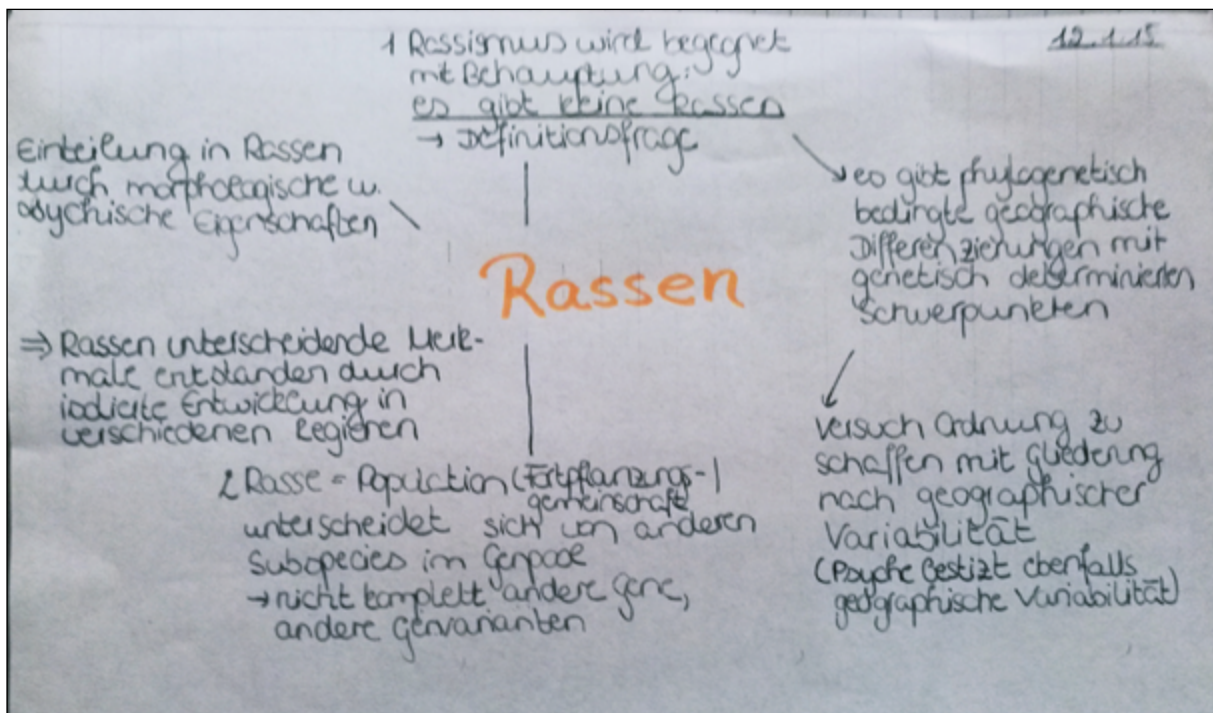 12.1.15
1 Rassismus wird begegnet
mit Behauptung:
es gibt keine Rassen
→ Definitionsfrage
Einteilung in Rassen
durch morphologische u.
psychische Eigenschaften
es gibt phylogenetisch
bedingte geographische
Differenzierungen mit
genetisch determinierten
Schwerpunkten
Rassen
⇒ Rassen unterscheidende Merk-
male entstanden durch
isolierte Entwicklung in
verschiedenen Regionen
Versuch Ordnung zu
schaffen mit Gliederung
nach geographischer
Variabilität
(Psyche bestizt ebenfalls
geographische Variabilität)
2 Rasse = Population (Fortpflanzungs-)
gemeinschaft
unterscheidet sich von anderen
Subspecies im Genpool
→ nicht komplett andere Gene,
andere Genvarianten